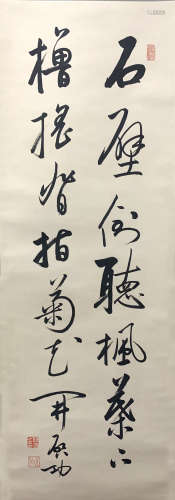 石壁倒聽楓葉下
櫓搖背指菊花開
啟功